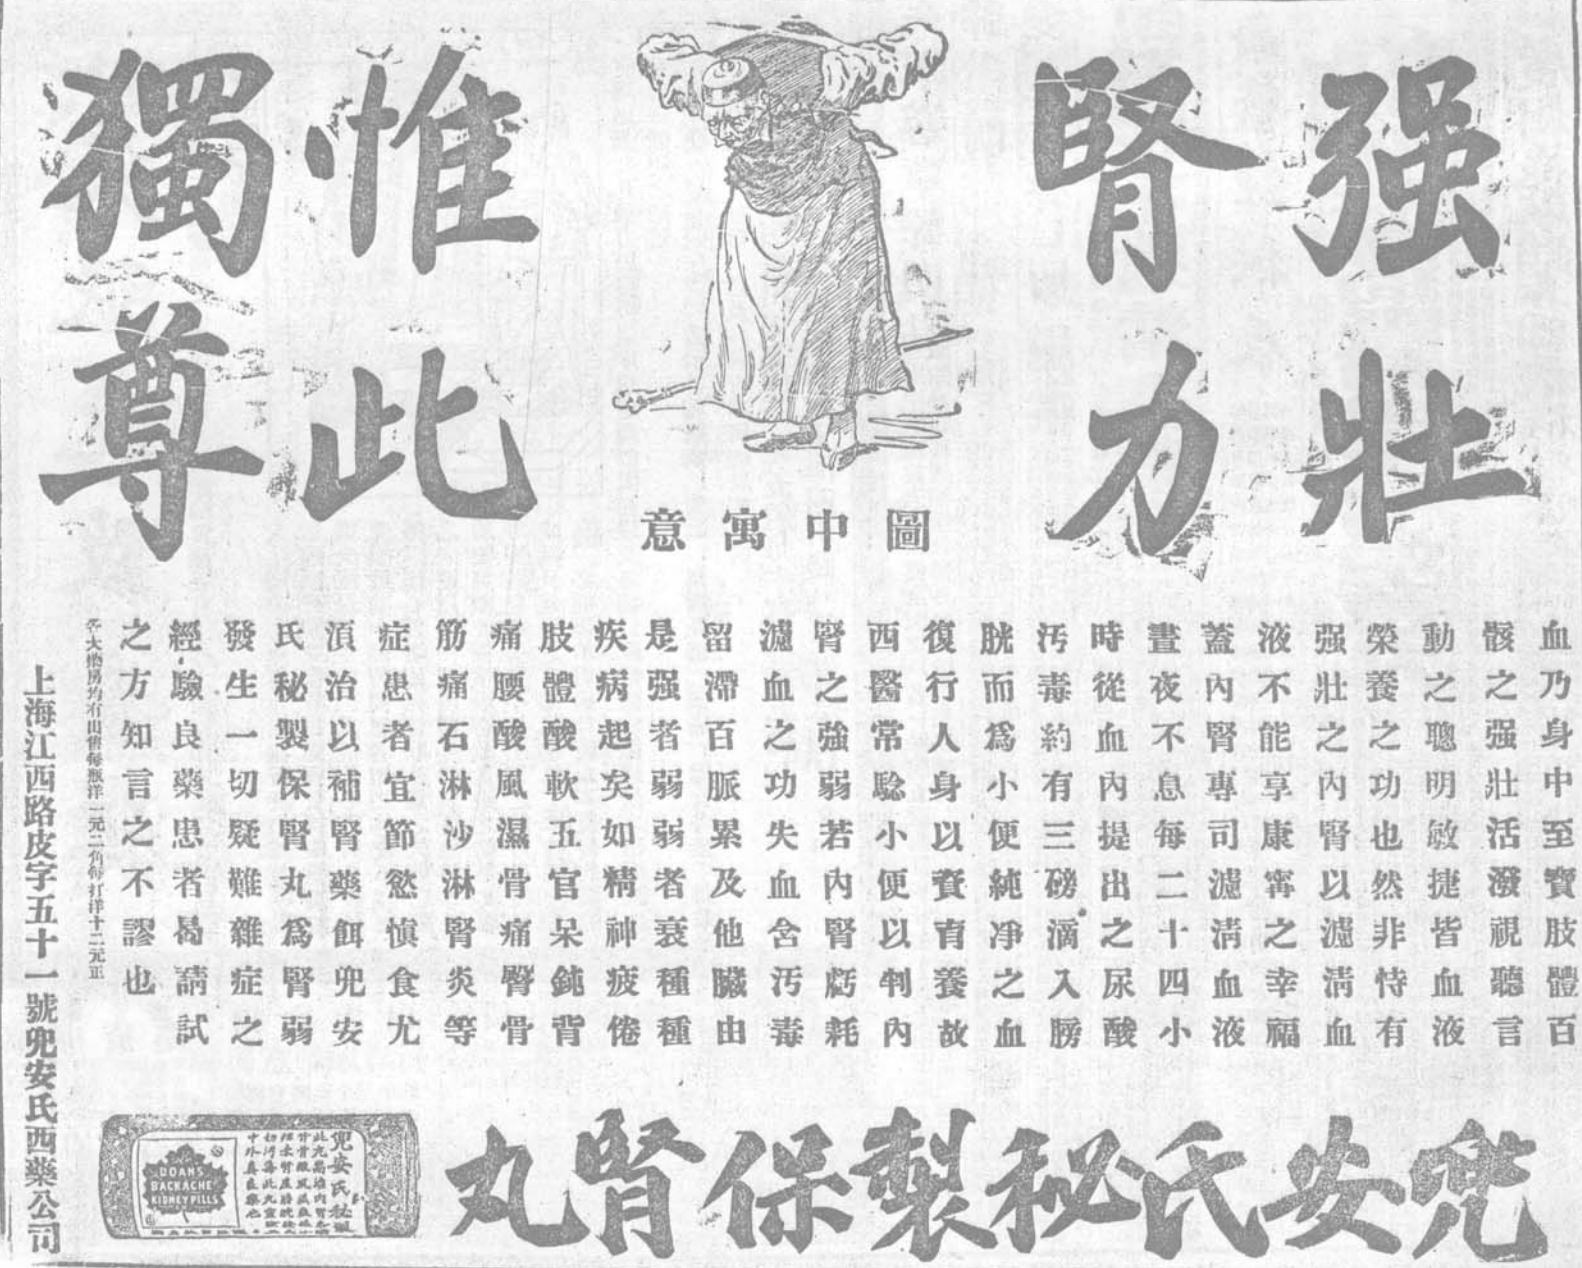 强壯
腎力
惟此
獨尊
圖中寓意
血乃身中至寶肢體百
骸之强壯活潑視聽言
動之聰明敏捷皆血液
榮養之功也然非恃有
强壯之內腎以濾淸血
液不能享康寗之幸福
蓋內腎專司濾淸血液
晝夜不息每二十四小
時從血內提出之尿酸
汚毒約有三磅滴入膀
胱而爲小便純净之血
復行人身以資育養故
西醫常騐小便以判內
腎之強弱若內腎虧耗
濾血之功失血含汚毒
留滯百脈累及他臟由
是强者弱弱者衰種種
疾病起矣如精神疲倦
肢體酸軟五官呆鈍背
痛腰酸風濕骨痛臀骨
筋痛石淋沙淋腎炎等
症患者宜節慾愼食尤
須治以補腎藥餌兜安
氏秘製保腎丸爲腎弱
發生一切疑難雜症之
經驗良藥患者曷請試
之方知言之不謬也
各大藥房均有出售每瓶洋一元二角每打洋十二元正
上海江西路皮字五十一號兜安氏西藥公司
兜安氏秘製保腎丸
兜安氏秘製
DOAN'S
BACKACHE
KIDNEY PILLS